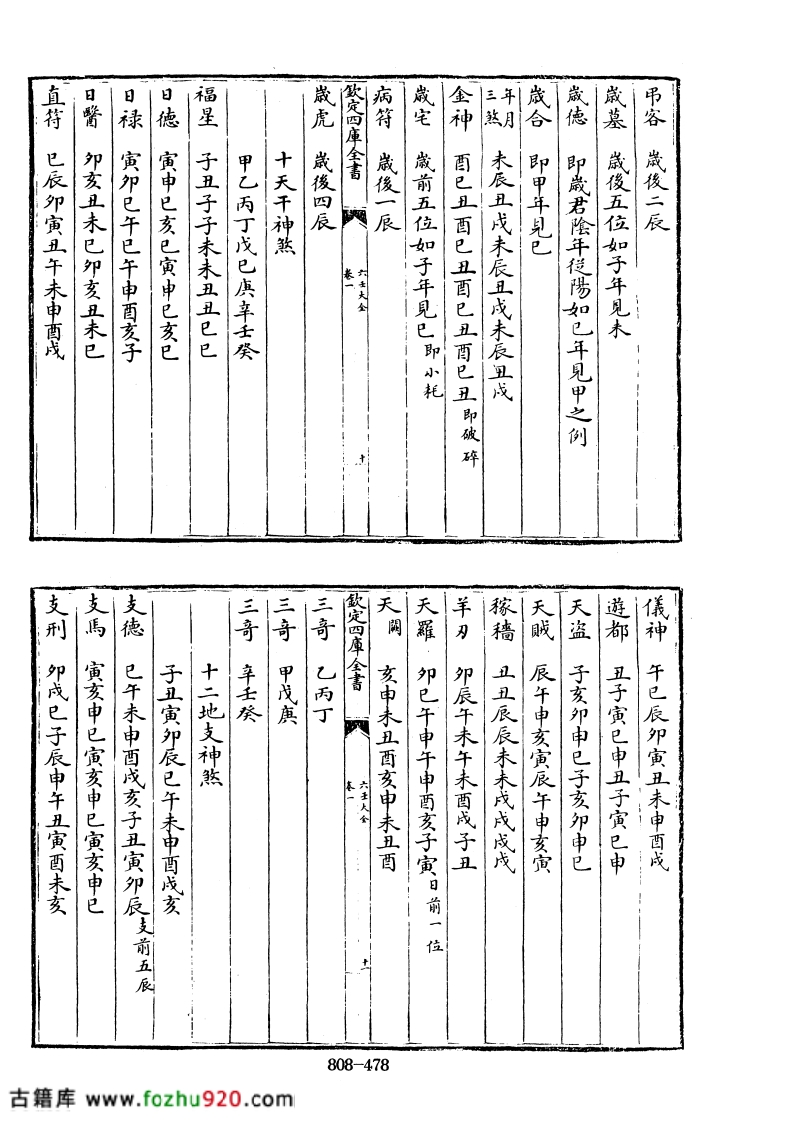 弔客 歲後二辰
歲墓 歲後五位如子年見未
歲德 即歲君陰年從陽如巳年見甲之例
歲合 即甲年見巳
年月三煞 未辰丑戌未辰丑戌未辰丑戌
金神 酉巳丑酉巳丑酉巳丑酉巳丑即破碎
歲宅 歲前五位如子年見巳即小耗
病符 歲後一辰
欽定四庫全書 六壬大全 卷一 十
歲虎 歲後四辰
十天干神煞
甲乙丙丁戊己庚辛壬癸
福星 子丑子子未未丑丑巳巳
日德 寅申巳亥巳寅申巳亥巳
日祿 寅卯巳午巳午申酉亥子
日醫 卯亥丑未巳卯亥丑未巳
直符 巳辰卯寅丑午未申酉戌
儀神 午巳辰卯寅丑未申酉戌
遊都 丑子寅巳申丑子寅巳申
天盜 子亥卯申巳子亥卯申巳
天賊 辰午申亥寅辰午申亥寅
稼穡 丑丑辰辰未未戌戌戌戌
羊刃 卯辰午未午未酉戌子丑
天羅 卯巳午申午申酉亥子寅日前一位
天關 亥申未丑酉亥申未丑酉
欽定四庫全書 六壬大全 卷一 十一
三奇 乙丙丁
三奇 甲戊庚
三奇 辛壬癸
十二地支神煞
子丑寅卯辰巳午未申酉戌亥
支德 巳午未申酉戌亥子丑寅卯辰支前五辰
支馬 寅亥申巳寅亥申巳寅亥申巳
支刑 卯戌巳子辰申午丑寅酉未亥
808-478
古籍库 www.fozhu920.com